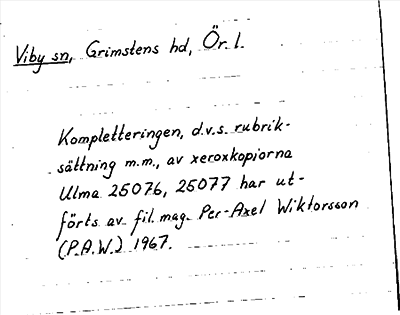 Viby sn, Grimstens hd, Ör. l.
Kompletteringen, d.v.s. rubrik-
sättning m.m., av xeroxkopiorna
Ulma 25076, 25077 har ut-
förts av fil. mag. Per-Axel Wiktorsson
(P.A.W.) 1967.